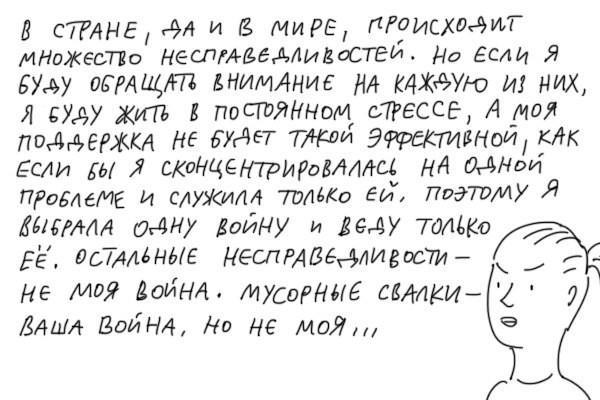 В СТРАНЕ, ДА И В МИРЕ, ПРОИСХОДИТ
МНОЖЕСТВО НЕСПРАВЕДЛИВОСТЕЙ. НО ЕСЛИ Я
БУДУ ОБРАЩАТЬ ВНИМАНИЕ НА КАЖДУЮ ИЗ НИХ,
Я БУДУ ЖИТЬ В ПОСТОЯННОМ СТРЕССЕ, А МОЯ
ПОДДЕРЖКА НЕ БУДЕТ ТАКОЙ ЭФФЕКТИВНОЙ, КАК
ЕСЛИ БЫ Я СКОНЦЕНТРИРОВАЛАСЬ НА ОДНОЙ
ПРОБЛЕМЕ И СЛУЖИЛА ТОЛЬКО ЕЙ. ПОЭТОМУ Я
ВЫБРАЛА ОДНУ ВОЙНУ И ВЕДУ ТОЛЬКО
ЕЁ. ОСТАЛЬНЫЕ НЕСПРАВЕДЛИВОСТИ –
НЕ МОЯ ВОЙНА. МУСОРНЫЕ СВАЛКИ –
ВАША ВОЙНА, НО НЕ МОЯ...